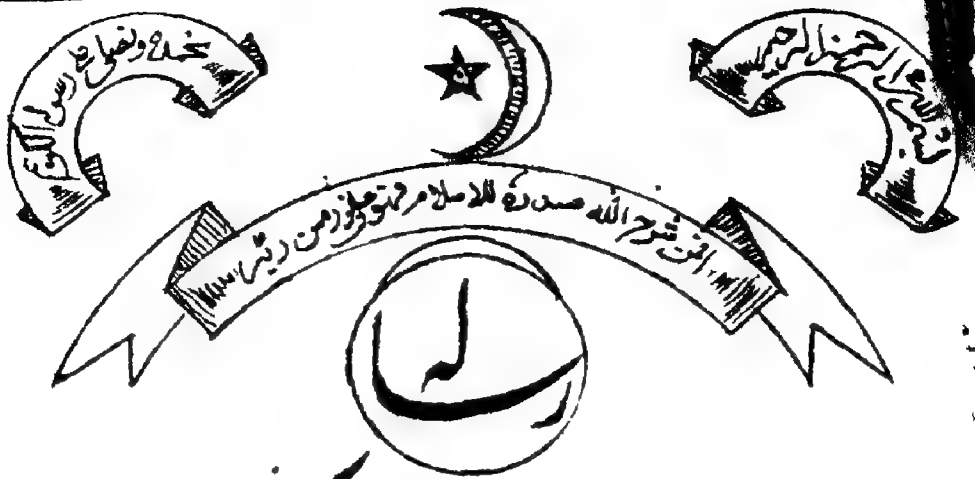 بسم الله الرحمن الرحيم
نحمده ونصلی علی رسوله الکریم
افمن شرح الله صدره للاسلام فهو علی نور من ربه
رسالہ